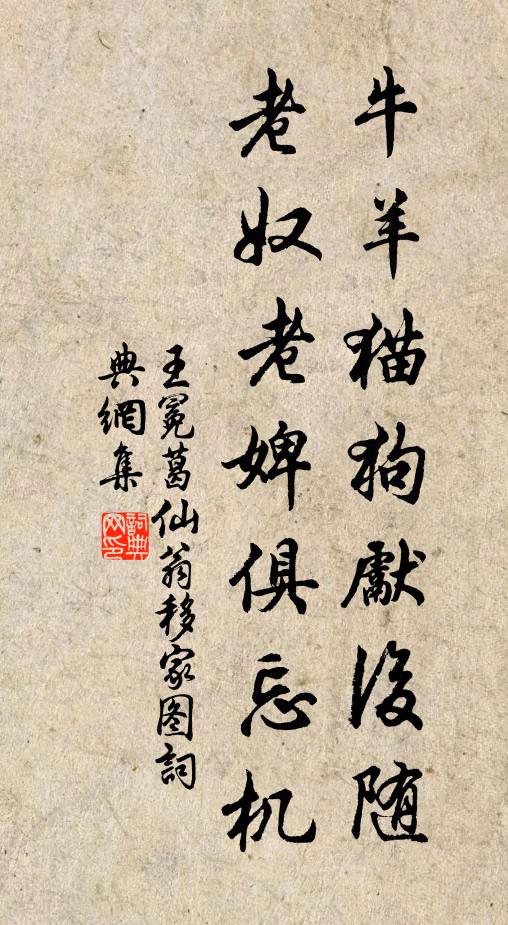 牛羊猫狗獻後随
老奴老婢俱忘机
王冕葛仙翁移家图詞
典網集
詞典网印